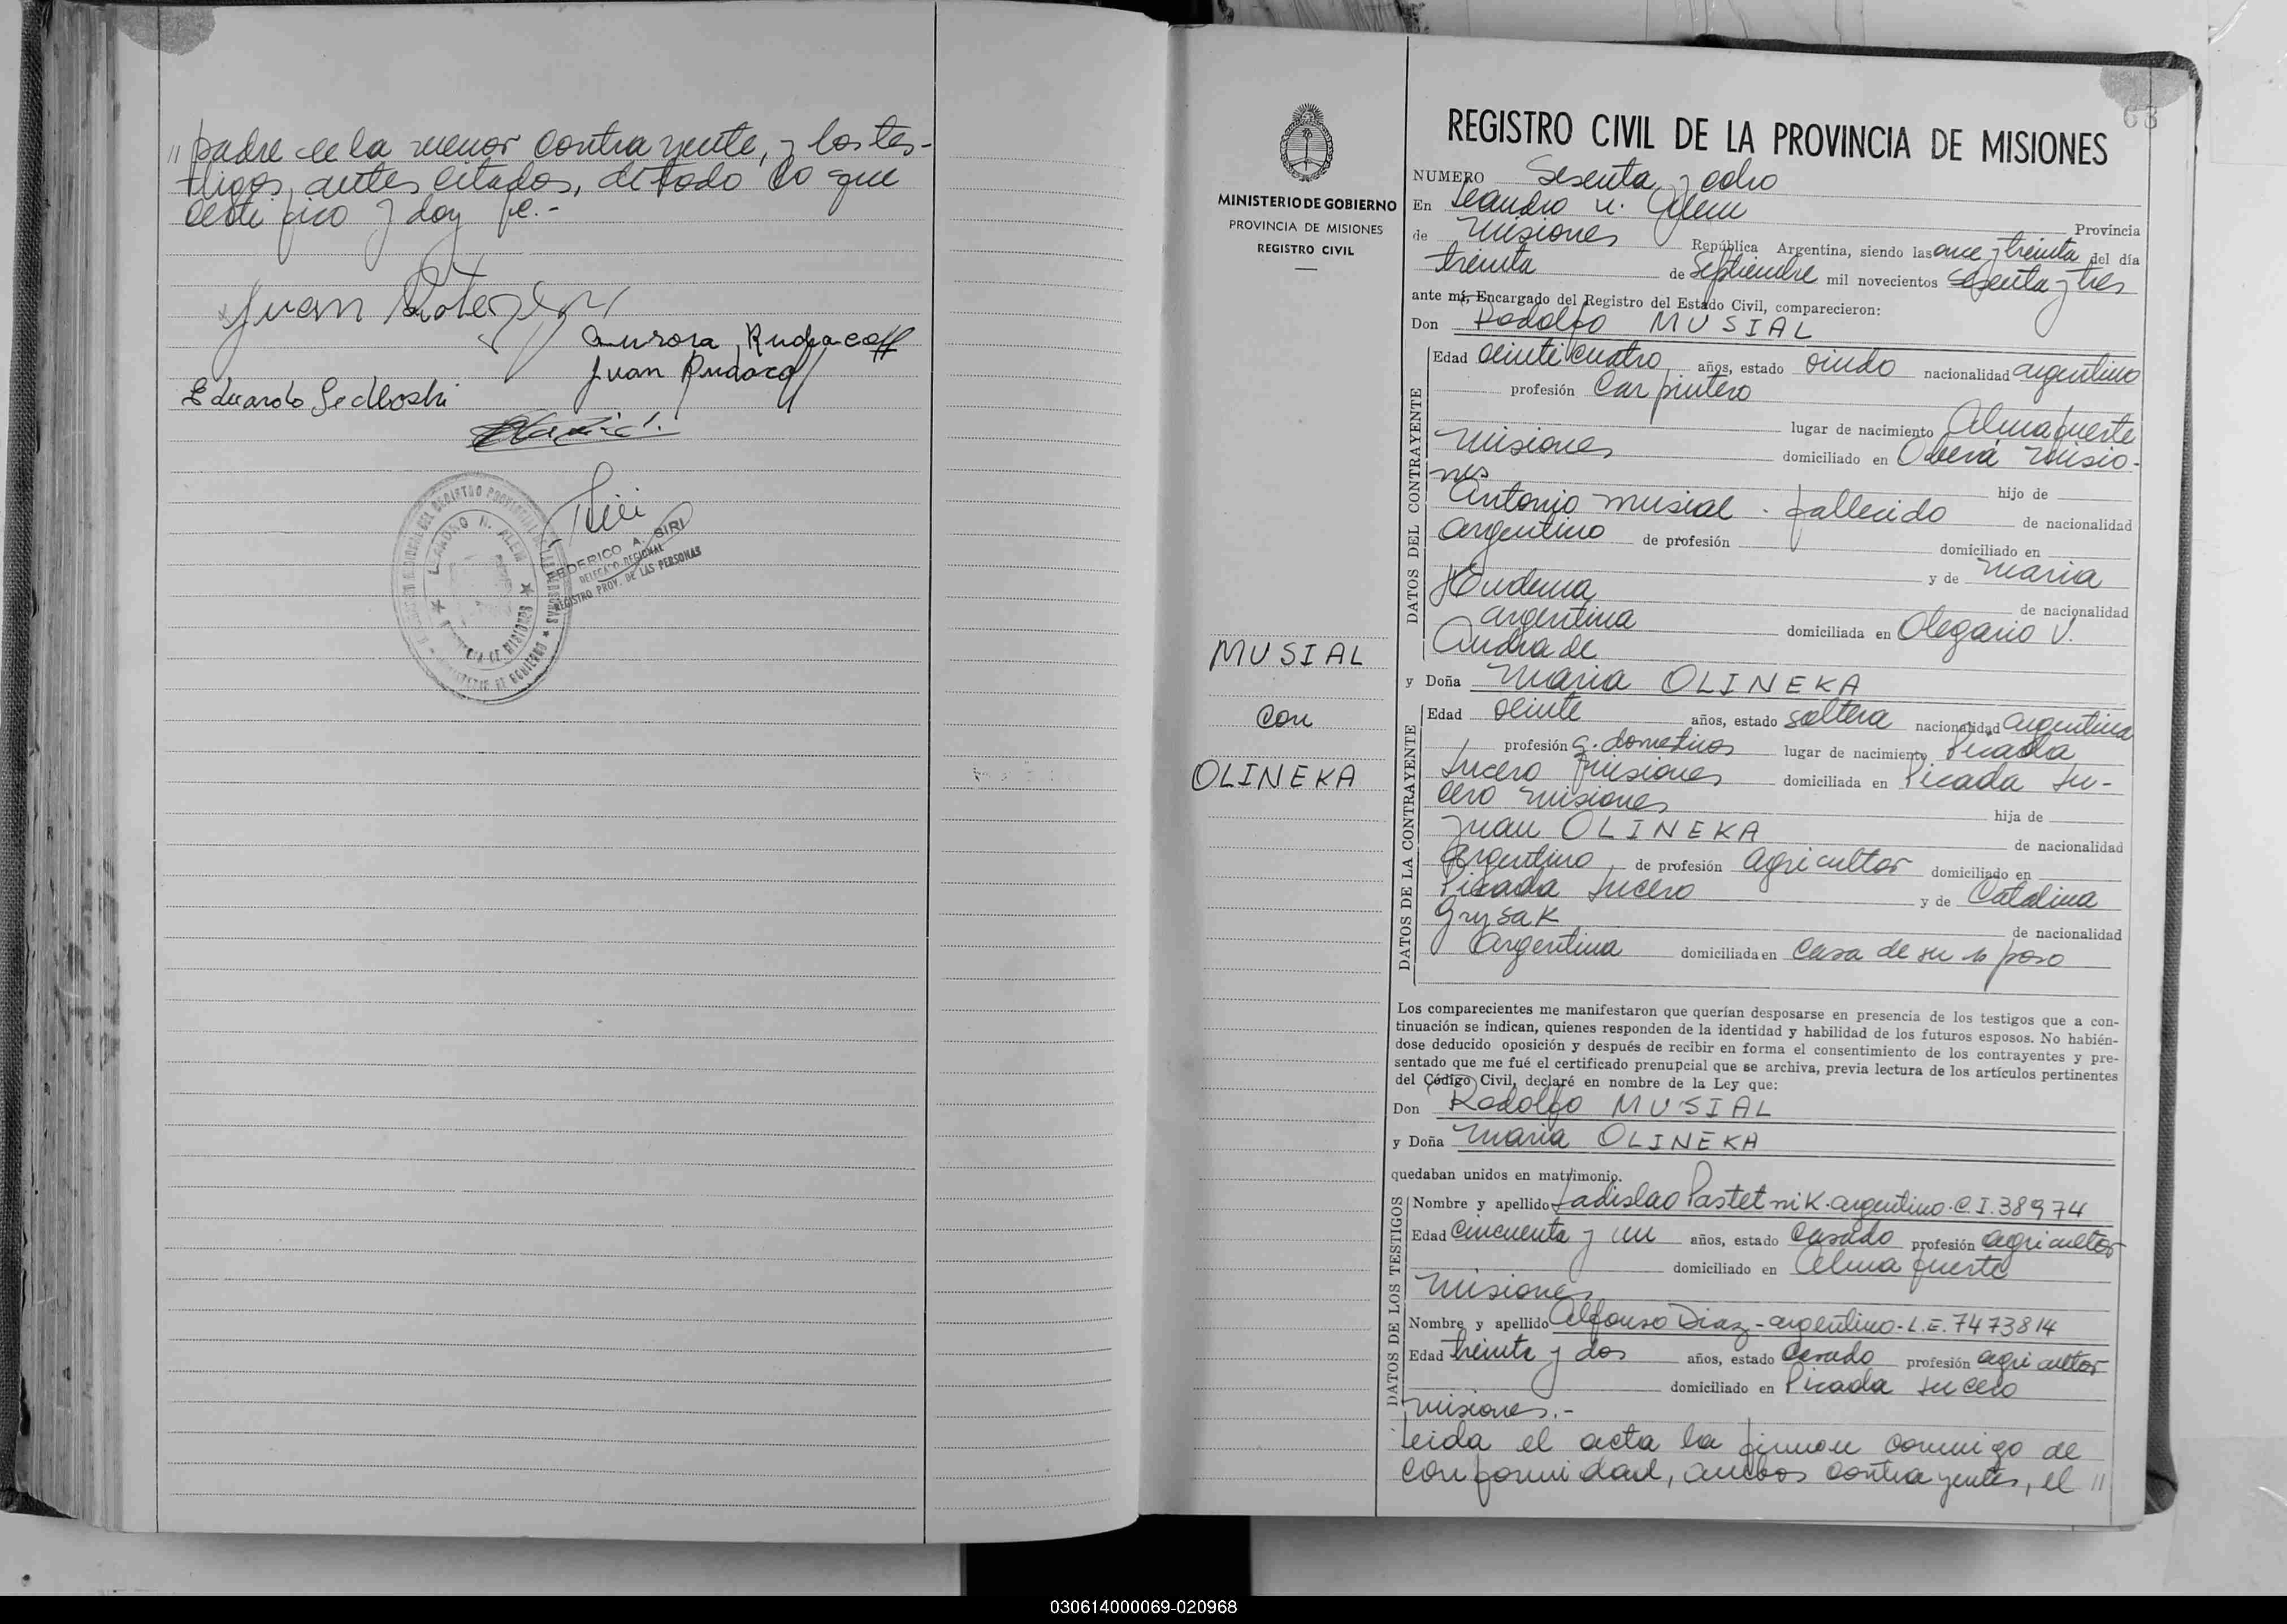 // padre de la menor contrayente, y los tes-
tigos, antes citados, de todo lo que
certifico y doy fe.-
Juan
Aurora Rudacoff
Juan Rudacoff
Eduardo Sedboski
LEANDRO N. ALEM
FEDERICO A. SIRI
DELEGADO REGIONAL
REGISTRO PROV. DE LAS PERSONAS
63
MINISTERIO DE GOBIERNO
PROVINCIA DE MISIONES
REGISTRO CIVIL
MUSIAL
con
OLINEKA
REGISTRO CIVIL DE LA PROVINCIA DE MISIONES
NUMERO Sesenta y ocho
En Leandro N. Alem Provincia
de Misiones República Argentina, siendo las once y treinta del día
treinta de Septiembre mil novecientos sesenta y tres
ante mí, Encargado del Registro del Estado Civil, comparecieron:
Don Rodolfo MUSIAL
DATOS DEL CONTRAYENTE
Edad veinticuatro años, estado viudo nacionalidad argentino
profesión Carpintero
lugar de nacimiento Almafuerte
Misiones domiciliado en Oberá Misio-
nes hijo de
Antonio Musial - fallecido de nacionalidad
argentino de profesión domiciliado en
y de Maria
Hudema de nacionalidad
argentina domiciliada en Olegario V.
Andrade
y Doña Maria OLINEKA
DATOS DE LA CONTRAYENTE
Edad veinte años, estado soltera nacionalidad argentina
profesión q. domesticos lugar de nacimiento Picada
Lucero Misiones domiciliada en Picada Lu-
cero Misiones hija de
Juan OLINEKA de nacionalidad
Argentino de profesión agricultor domiciliado en
Picada Lucero y de Catalina
Grysak de nacionalidad
Argentina domiciliada en casa de su esposo
Los comparecientes me manifestaron que querían desposarse en presencia de los testigos que a con-
tinuación se indican, quienes responden de la identidad y habilidad de los futuros esposos. No habién-
dose deducido oposición y después de recibir en forma el consentimiento de los contrayentes y pre-
sentado que me fué el certificado prenupcial que se archiva, previa lectura de los artículos pertinentes
del Código Civil, declaré en nombre de la Ley que:
Don Rodolfo MUSIAL
y Doña Maria OLINEKA
quedaban unidos en matrimonio.
DATOS DE LOS TESTIGOS
Nombre y apellido Ladislao Pastetnik-argentino-C.I.38974
Edad cincuenta y un años, estado casado profesión agricultor
domiciliado en Almafuerte
Misiones
Nombre y apellido Alfonso Diaz-argentino-L.E.7473814
Edad treinta y dos años, estado casado profesión agricultor
domiciliado en Picada Lucero
Misiones.-
Leida el acta la firman conmigo de
conformidad, ambos contrayentes, el //
030614000069-020968